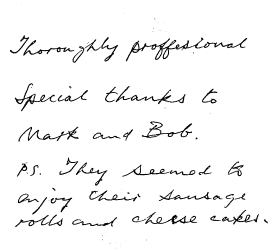 Thoroughly proffesional
Special thanks to
Mark and Bob.
PS. They seemed to
enjoy their sausage
rolls and cheese cakes.